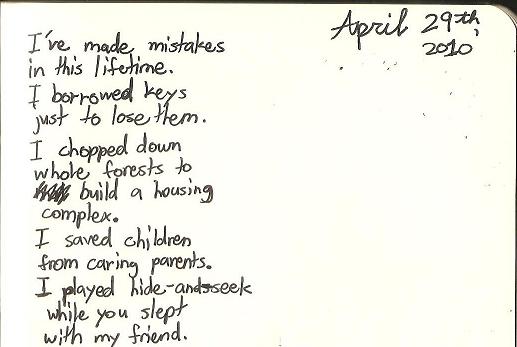 April 29th,
2010
I've made mistakes
in this lifetime.
I borrowed keys
just to lose them.
I chopped down
whole forests to
build a housing
complex.
I saved children
from caring parents.
I played hide-and-seek
while you slept
with my friend.